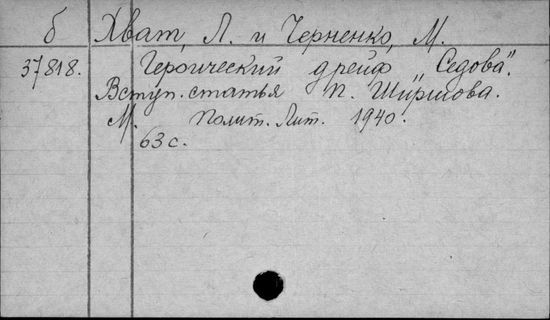 б Хват, Л. и Черненко, М.
37818. Героический дрейф „Седова".
Вступ. статья П. Ширшова.
М. Полит. Лит. 1940.
63 с.